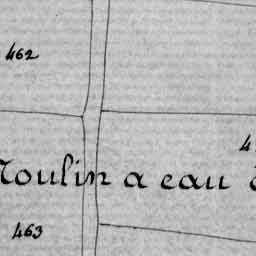 462
Moulin a eau
463